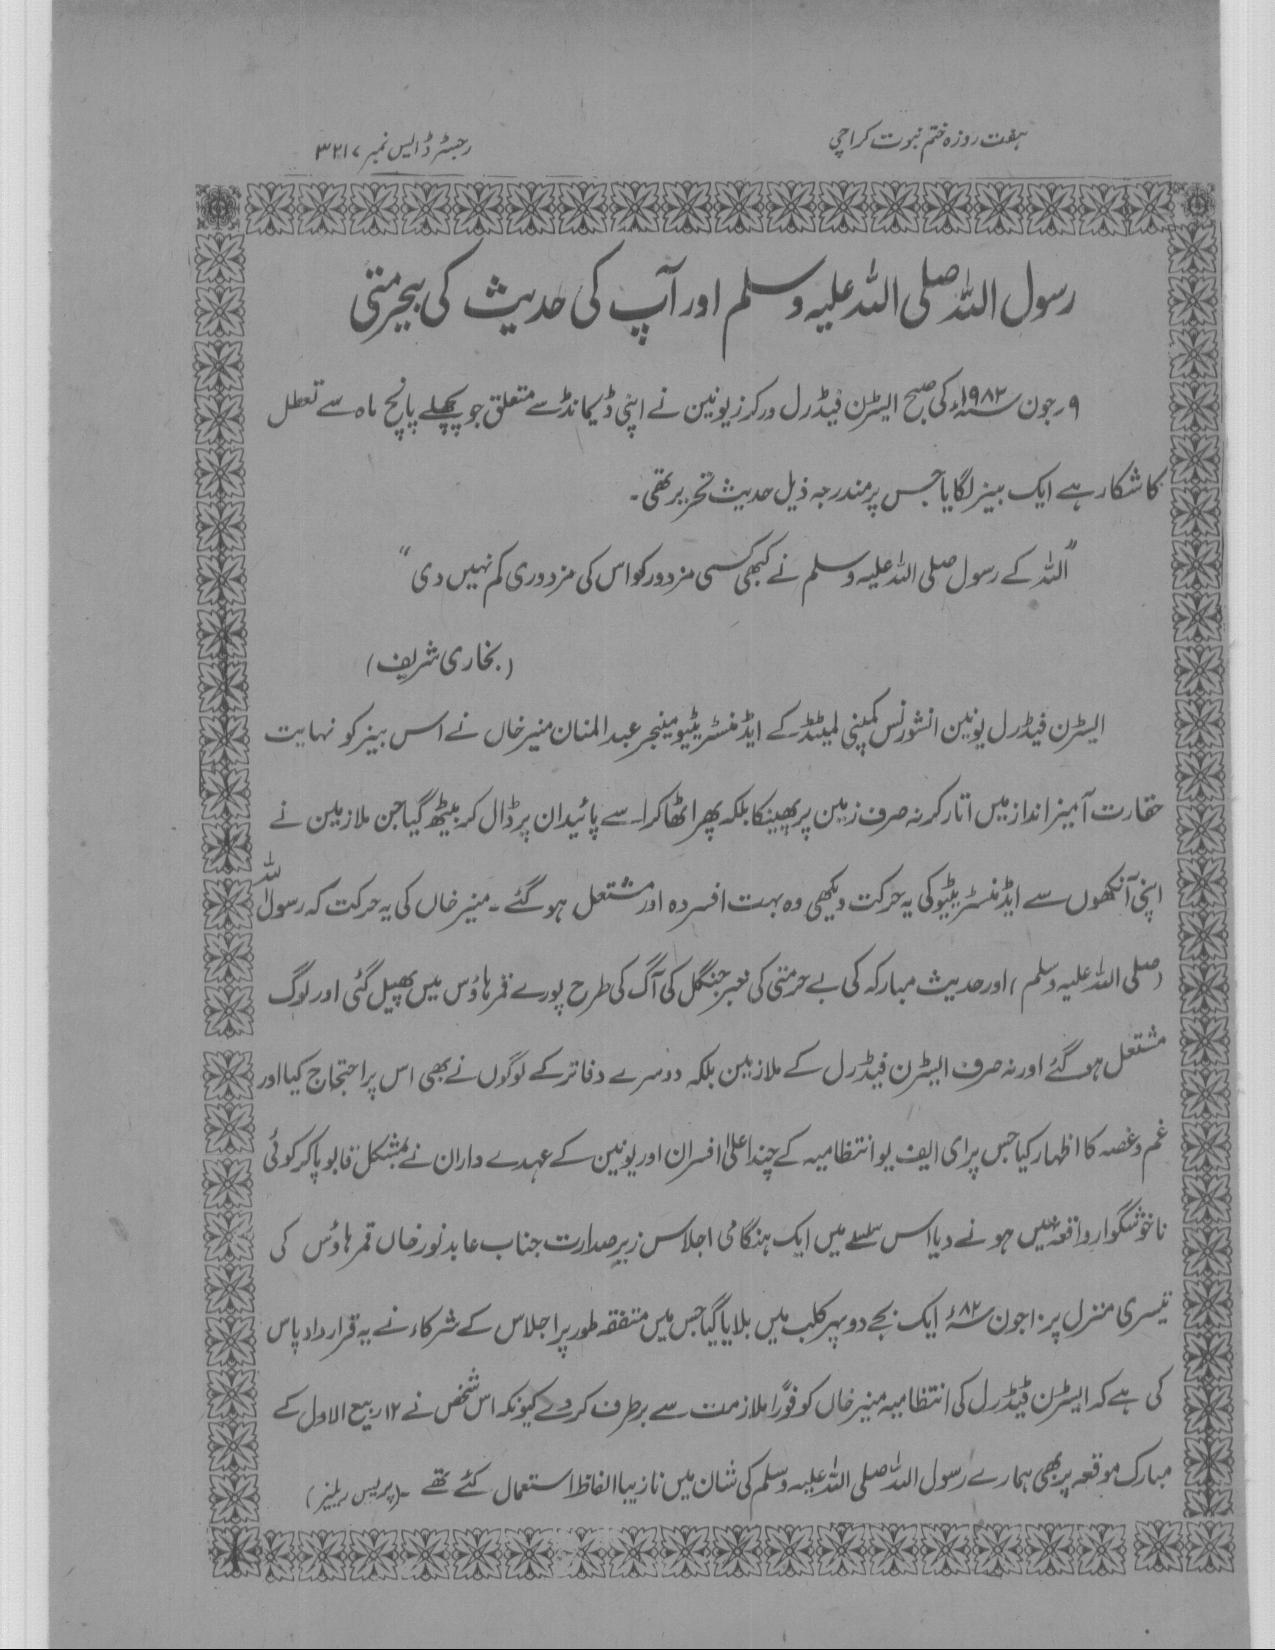 ہفت روزہ ختم نبوت کراچی
رجسٹرڈ ایس نمبر ۳۲۱۷
رسول اللہ صلی اللہ علیہ وسلم اور آپ کی حدیث کی بیحرمتی
۹ رجون ۱۹۸۲ء کی صبح ایسٹرن فیڈرل ورکرز یونین نے اپنی ڈیمانڈ سے متعلق جو پچھلے پانچ ماہ سے تعطل
کا شکار ہے ایک بینر لگایا جس پر مندرجہ ذیل حدیث تحریر تھی ۔
”اللہ کے رسول صلی اللہ علیہ وسلم نے کبھی کسی مزدور کو اس کی مزدوری کم نہیں دی“
(بخاری شریف)
ایسٹرن فیڈرل یونین انشورنس کمپنی لمیٹڈ کے ایڈمنسٹریٹیو مینجر عبدالمنان منیر خاں نے اس بینر کو نہایت
حقارت آمیز انداز میں اتار کر نہ صرف زمین پر پھینکا بلکہ پھر اٹھا کر اسے پائیدان پر ڈال کر بیٹھ گیا جن ملازمین نے
اپنی آنکھوں سے ایڈمنسٹریٹیو کی یہ حرکت دیکھی وہ بہت افسردہ اور مشتعل ہو گئے ۔ منیر خاں کی یہ حرکت کہ رسول اللہ
(صلی اللہ علیہ وسلم) اور حدیث مبارکہ کی بے حرمتی کی خبر جنگل کی آگ کی طرح پورے قمر ہاؤس میں پھیل گئی اور لوگ
مشتعل ہو گئے اور نہ صرف ایسٹرن فیڈرل کے ملازمین بلکہ دوسرے دفاتر کے لوگوں نے بھی اس پر احتجاج کیا اور
غم و غصہ کا اظہار کیا جس پر ای ایف یو انتظامیہ کے چند اعلیٰ افسران اور یونین کے عہدے داران نے بمشکل قابو پا کر کوئی
ناخوشگوار واقعہ نہیں ہونے دیا اس سلسلے میں ایک ہنگامی اجلاس زیر صدارت جناب عابد نور خاں قمر ہاؤس کی
تیسری منزل پر ۱۰ جون ۸۲ء ایک بجے دوپہر کلب میں بلایا گیا جس میں متفقہ طور پر اجلاس کے شرکاء نے یہ قرارداد پاس
کی ہے کہ ایسٹرن فیڈرل کی انتظامیہ منیر خاں کو فوراً ملازمت سے برطرف کر دے کیونکہ اس شخص نے ۱۲ ربیع الاول کے
مبارک موقعہ پر بھی ہمارے رسول اللہ صلی اللہ علیہ وسلم کی شان میں نازیبا الفاظ استعمال کئے تھے ۔ (پریس ریلیز)